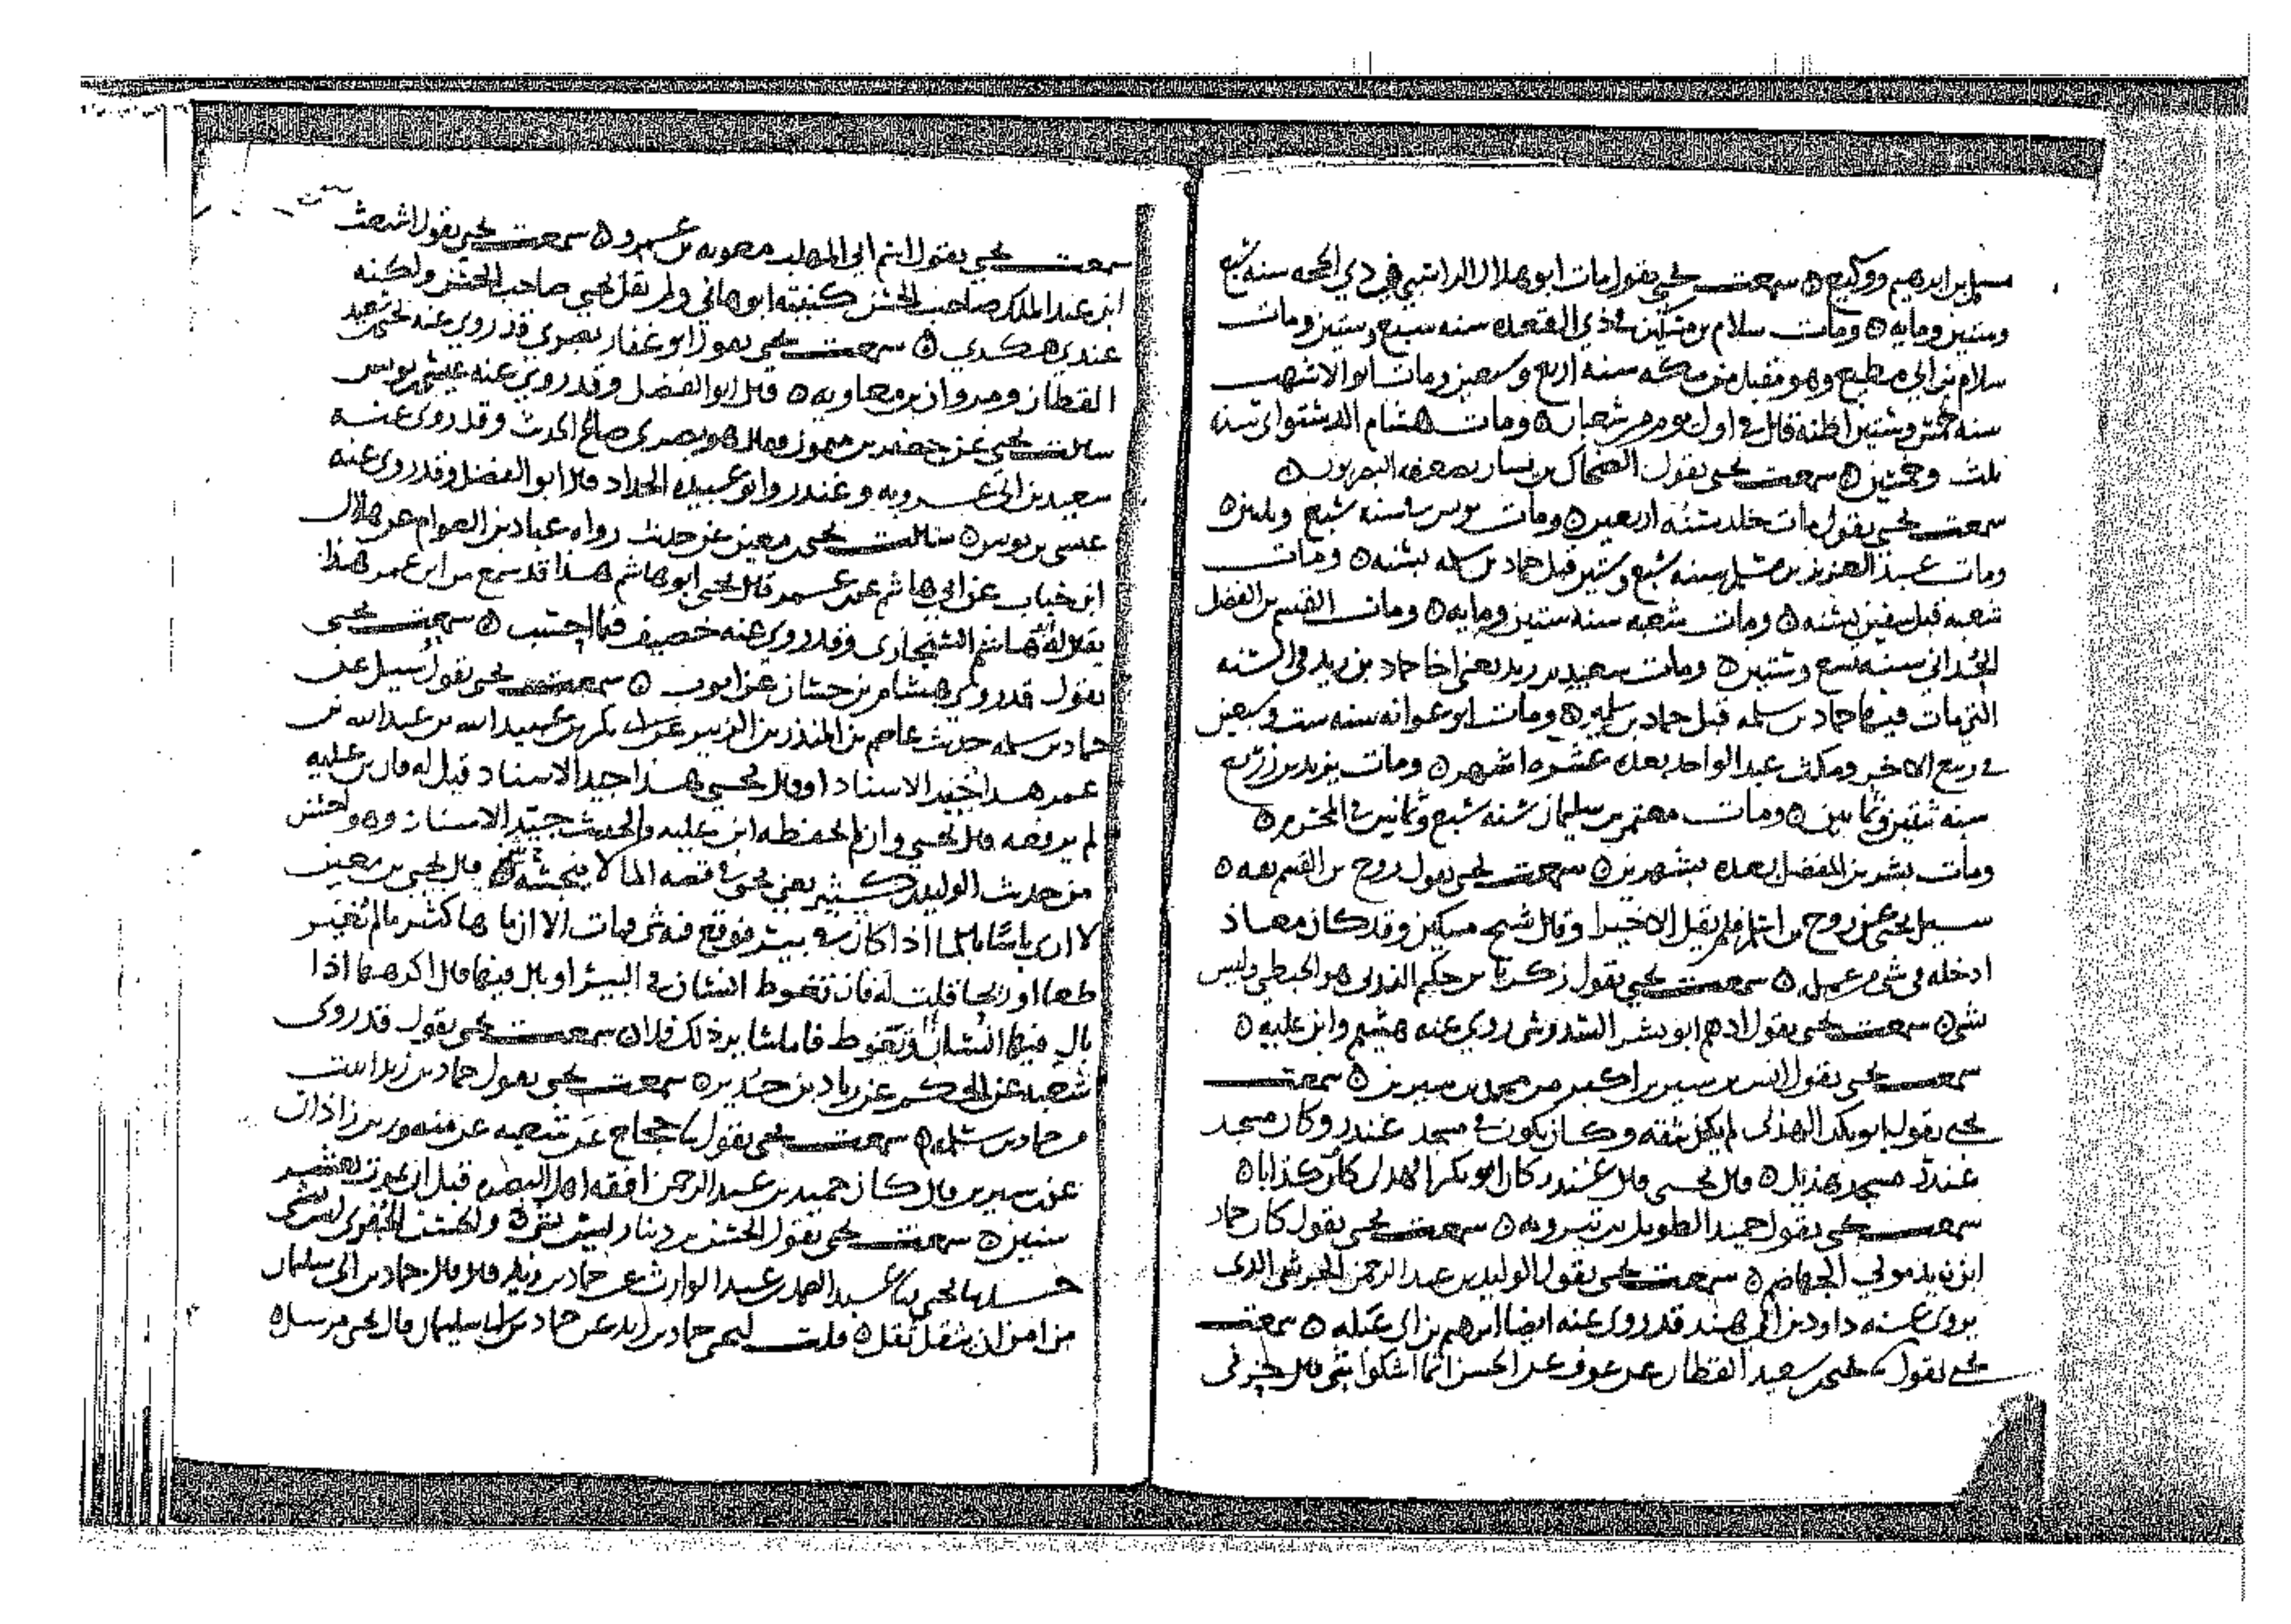 مسلم بن ابرهيم ووكيع ه سمعت يحيى يقول مات ابو هلال الراسبي في ذي الحجه سنه سبع
وستين ومايه ه ومات سلام بن مسكين في ذي القعده سنه سبع وستين ومات
سلام بن ابي مطيع وهو مقبل من مكه سنه اربع وسبعين ومات ابو الاشهب
سنه خمس وستين اظنه قال في اول يوم من شعبان ه ومات هشام الدستوائي سنه
ثلث وخمسين ه سمعت يحيى يقول الضحاك بن يسار يضعفه البصريون ه
سمعت يحيى يقول مات خلد سنه اربعين ه ومات يونس في سنه تسع وثلثين ه
ومات عبد العزيز بن مسلم سنه سبع وستين قبل حماد بن سلمه بسنه ه ومات
شعبه قبل سفين بسنه ه ومات شعبه سنه ستين ومايه ه ومات القسم بن الفضل
الحداني سنه سبع وستين ه ومات سعيد بن زيد يعني اخا حماد بن زيد في السنه
التي مات فيها حماد بن سلمه قبل حماد بن سلمه ه ومات ابو عوانه سنه ست وسبعين
في ربيع الاخر ومكث عبد الواحد بعده عشره اشهر ه ومات يزيد بن زريع
سنه ثنتين وثمانين ه ومات معتمر بن سليمان سنه سبع وثمانين في المحرم ه
ومات بشر بن المفضل بعده بشهرين ه سمعت يحيى يقول روح بن القسم ثقه ه
سيل يحيى عن روح بن اسلم فلم يقل الا خيرا وقال شيخ مسكين وقد كان معاذ
ادخله في شيء عمل ه سمعت يحيى يقول زكريا بن حكيم البدي هو الحبطي وليس
بشي ه سمعت يحيى يقول ادهم ابو بشر السدوسي روى عنه هشيم وابن عليه ه
سمعت يحيى يقول انس بن سيرين اكبر من محمد بن سيرين ه سمعت
يحيى يقول ابو بكر الهذلي لم يكن بثقه وكان يكون في مسجد غندر وكان مسجد
غندر مسجد هذيل ه قال يحيى قال غندر كان ابو بكر الهذلي كان كذابا ه
سمعت يحيى يقول حميد الطويل بن تيرويه ه سمعت يحيى يقول كان حماد
ابن زيد مولى الجهاضم ه سمعت يحيى يقول الوليد بن عبد الرحمن الجرشي الذي
يروي عنه داود بن ابي هند قد روى عنه ايضا ابرهيم بن ابي عبله ه سمعت
يحيى يقول ثنا يحيى بن سعيد القطان عن عوف عن الحسن انما اشكوا بثي قال حزني
سمعت يحيى يقول اسم ابي المهلب معويه بن عمرو ه سمعت يحيى يقول اشعث
ابن عبد الملك صاحب الحسن كنيته ابو هاني ولم يقل يحيى صاحب الحسن ولكنه
عندي هكذي ه سمعت يحيى يقول ابو غفار بصري قد روى عنه يحيى بن سعيد
القطان ومروان بن معاويه ه قال ابو الفضل وقد روى عنه عيسى بن يونس
سالت يحيى عن جعفر بن ميمون فقال هو بصري صالح الحديث وقد روى عنه
سعيد بن ابي عروبه وغندر وابو عبيده الحداد قال ابو الفضل وقد روى عنه
عيسى بن يونس ه سالت يحيى بن معين عن حديث رواه عباد بن العوام عن هلال
ابن خباب عن ابي هاشم عن ابن عمر قال يحيى ابو هاشم هذا قد سمع من ابن عمر هذا
يقال له هاشم السنجاري وقد روى عنه خصيف فيما احسب ه سمعت يحيى
يقول قد روى هشام بن حسان عن ايوب ه سمعت يحيى يقول سيل عن
حماد بن سلمه حديث عاصم بن المنذر بن الزبير عن ابي بكر بن عبيد الله بن عبد الله بن
عمر هذا جيد الاسناد او قال يحيى هذا جيد الاسناد قيل له فان بن عليه
لم يرفعه قال يحيى وان لم يحفظه ابن عليه فالحديث جيد الاسناد وهو احسن
من حديث الوليد بن كثير يعني يحيى في قصه الما لا ينجسه شي ه قال يحيى بن معين
لا ارى باسا بالما اذا كان في بير فوقع فيه شي ومات الا ان ماها كثير ما لم تغير
طعما او ريحا قلت له فان تغوط انسان في البير او بال فيها قال اكرهها اذا
بال فيها انسان او تغوط فاما سايرذلك فلا ه سمعت يحيى يقول قد روى
شعبه عن الحكم عن زياد بن حدير ه سمعت يحيى يقول حماد بن زيد اثبت
من حماد بن سلمه ه سمعت يحيى يقول ثنا حجاج عن شعبه عن منصور بن زاذان
عن بن سيرين قال كان حميد بن عبد الرحمن افقه اهل البصره قبل ان يموت بعشر
سنين ه سمعت يحيى يقول الحسن بن دينار ليس بثقه ه والحسن الجفري ليس بشي
حدثنا يحيى ثنا عبد الصمد بن عبد الوارث عن حماد بن زيد قال قال حماد بن ابي سليمان
من امن ان يثقل ثقل ه قلت ليحيى حماد بن زيد عن حماد بن ابي سليمان قال يحيى مرسل ه